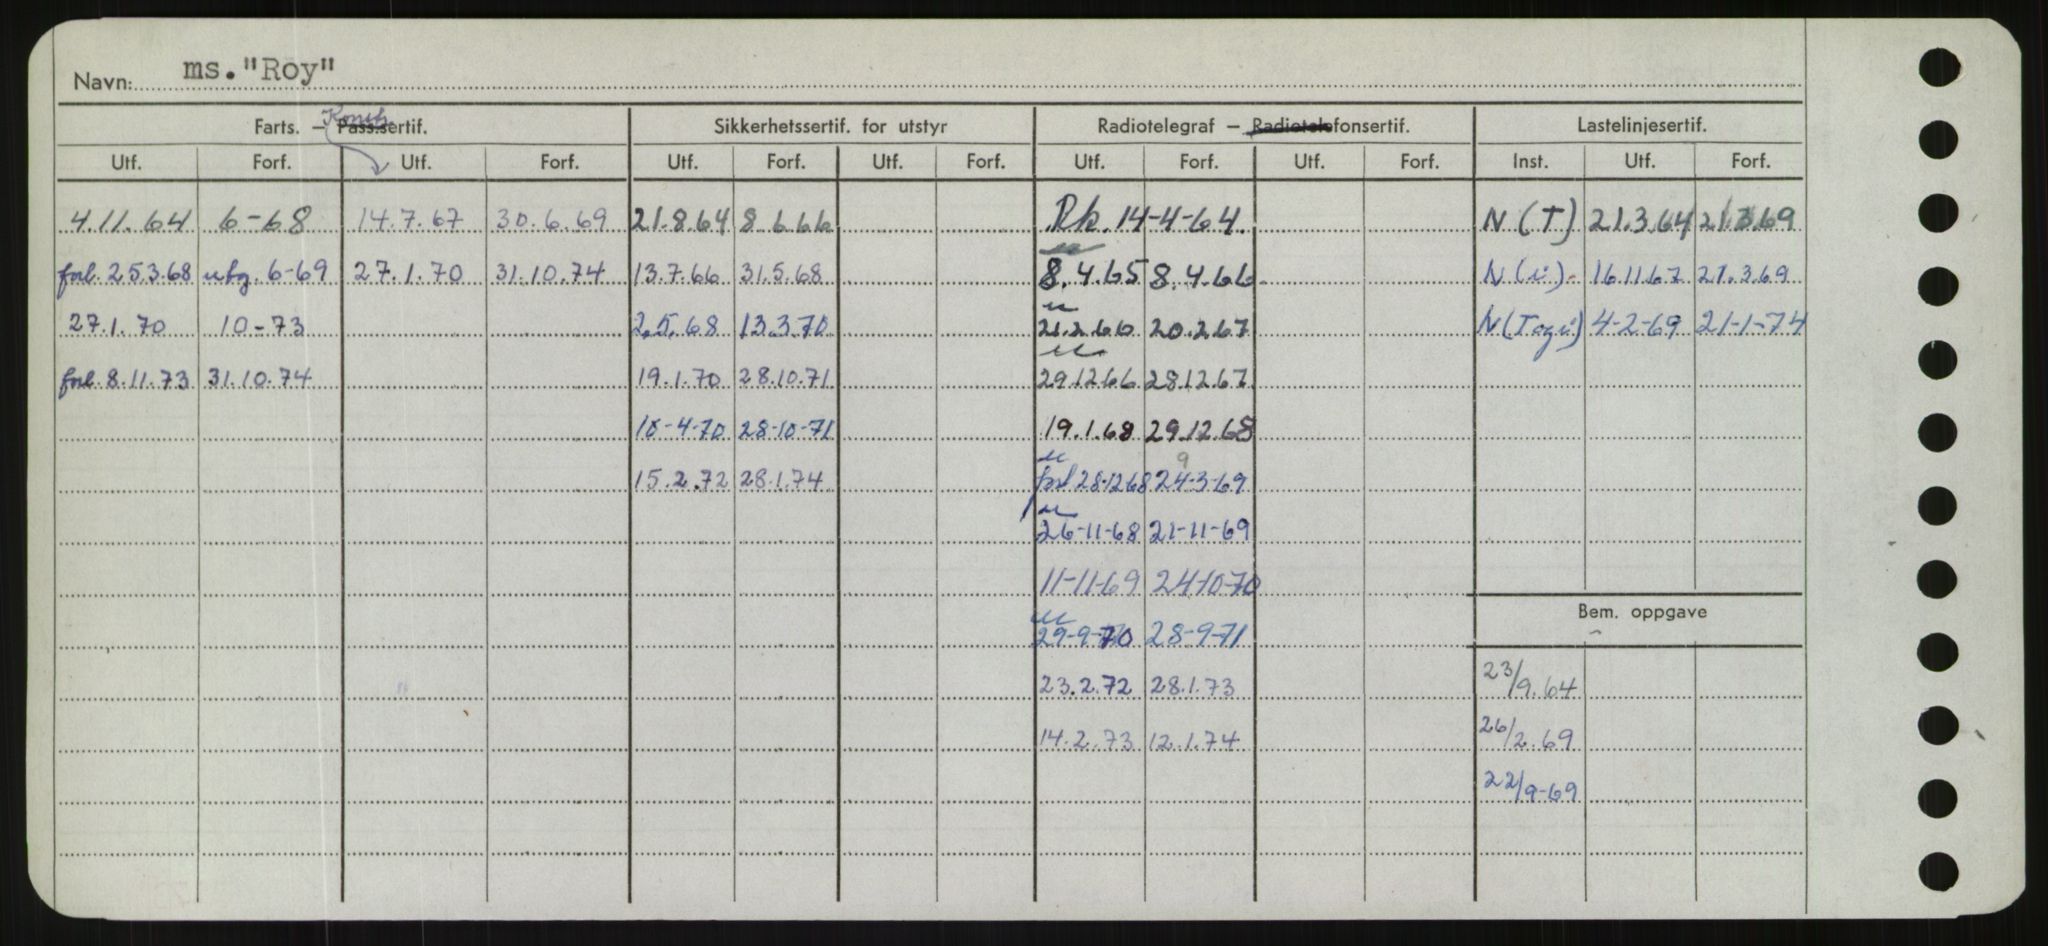 Navn: ms. "Roy"
Farts. – Pass.sertif. Konstr. Sikkerhetssertif. for utstyr Radiotelegraf – Radiotelefonsertif. Lastelinjesertif.
Utf. Forf. Utf. Forf. Utf. Forf. Utf. Forf. Utf. Forf. Utf. Forf. Inst. Utf. Forf.
4.11.64 6-68 14.7.67 30.6.69 21.8.64 8.6.66 Rk. 14-4-64. N (T) 21.3.64 21.3.69
forl. 25.3.68 utg. 6-69 27.1.70 31.10.74 13.7.66 31.5.68 8.4.65 8.4.66 N (u) 16.11.67 21.3.69
27.1.70 10-73 2.5.68 13.3.70 21.2.66 20.2.67 N (T og u) 4-2-69 21-1-74
forl. 8.11.73 31.10.74 19.1.70 28.10.71 29.12.66 28.12.67
10-4-70 28-10-71 19.1.68 29.12.68
15.2.72 28.1.74 forl 28-12-68 24-3-69
9
26-11-68 21-11-69
11-11-69 24-10-70
Bem. oppgave
29-9-70 28-9-71
23.2.72 28.1.73 23/9.64
14.2.73 12.1.74 26/2.69
22/9-69